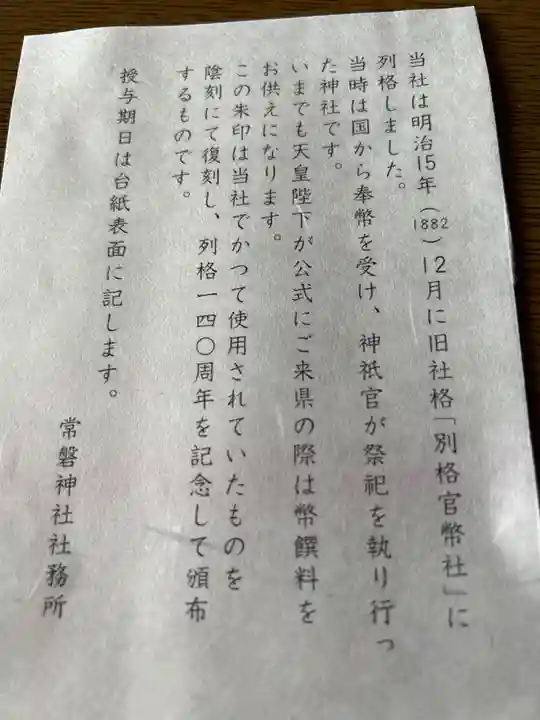 当社は明治15年(1882)12月に旧社格「別格官幣社」に
列格しました。
当時は国から奉幣を受け、神祇官が祭祀を執り行っ
た神社です。
いまでも天皇陛下が公式にご来県の際は幣饌料を
お供えになります。
この朱印は当社でかつて使用されていたものを
陰刻にて復刻し、列格一四〇周年を記念して頒布
するものです。
授与期日は台紙表面に記します。
常磐神社社務所